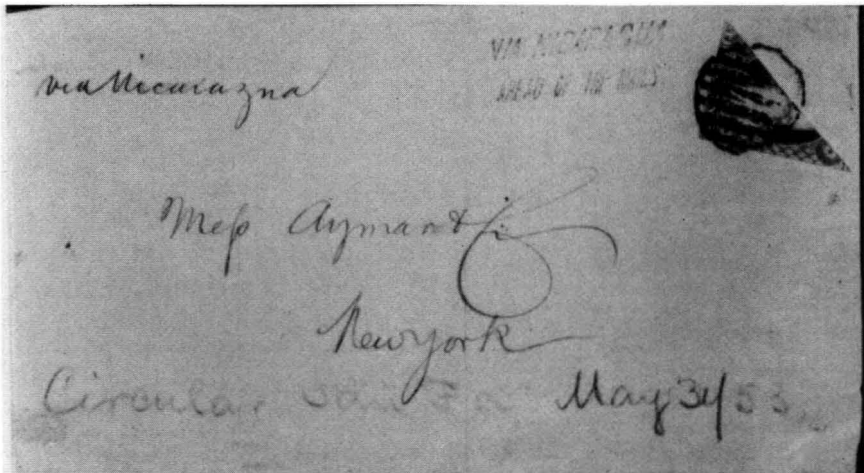 via Nicaragua
VIA NICARAGUA
AHEAD OF THE MAILS
Mess Aymar & Co
New York
Circular San Fro May 31/53